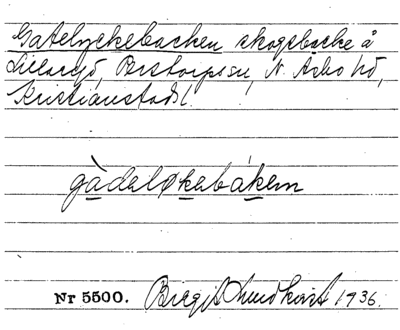 Gatelyckebacken skogsbacke å
Lillaryd, Brstorpssn, N. Åsbo hd,
Kristianstads l.
gàdeløkebákem
Nr 5500. Birgit Lundkvist 1936.